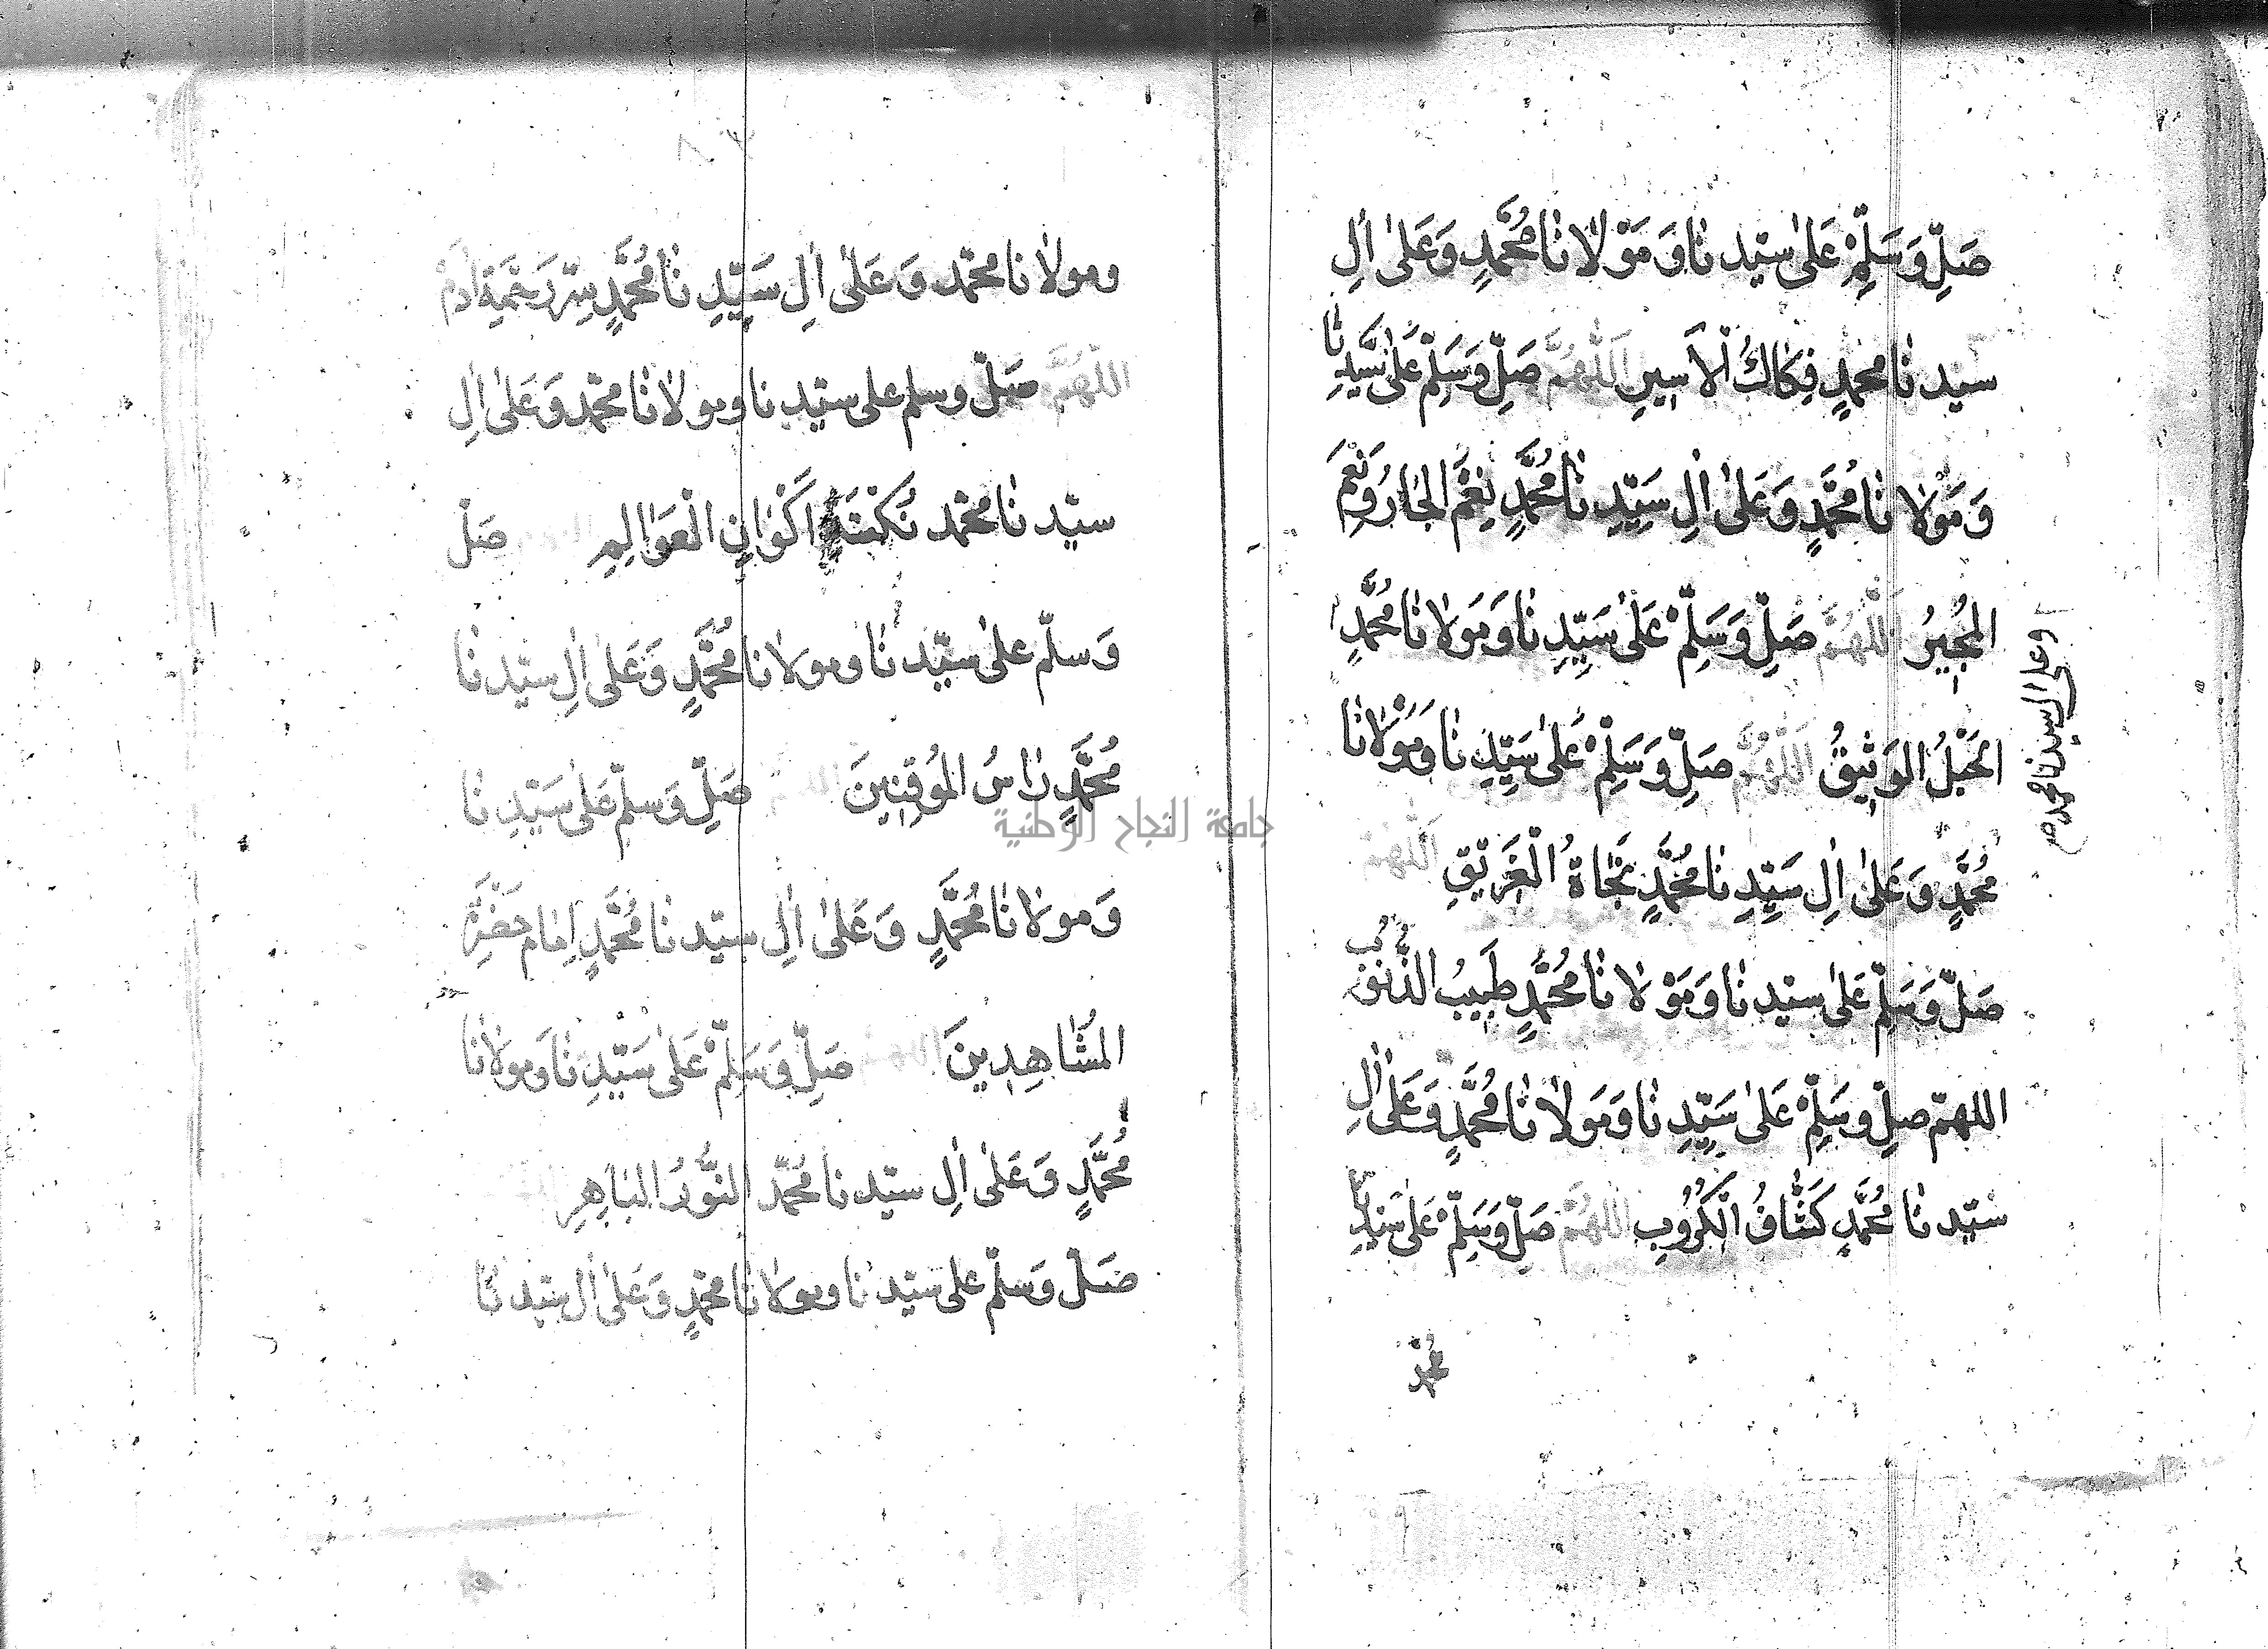 صَلِّ وَسَلِّمْ عَلٰى سيّد نٰا وَمَوْلاٰنٰا مُحَمَّدٍ وَعَلٰى اٰلِ
سيّد نٰا محمدٍ فِكٰاكُ الْاَسِيرِ اَللّٰهُمَّ صَلِّ وَسَلِّمْ عَلٰى سَيِّدِ نٰا
وَمَوْلاٰ نٰا مُحَمَّدٍ وَعَلٰى اٰلِ سَيِّدِ نٰا مُحَمَّدٍ نِعْمَ الْجٰارُ وَنِعْمَ
الْمُجِيرُ اَللّٰهُمَّ صَلِّ وَسَلِّمْ عَلٰى سَيِّدِ نٰا وَمَولاٰ نٰا مُحَمَّدٍ
وعلى ال سيدنا محمد صح
الْحَبْلُ الْوَثِيقُ اَللّٰهُمَّ صَلِّ وَسَلِّمْ عَلٰى سَيِّدِ نٰا وَمَوْلاٰنٰا
مُحَمَّدٍ وَعَلٰى اٰلِ سَيِّدِ نٰا مُحَمَّدٍ نَجٰاةُ الْغَرِيقِ اَللّٰهُمَّ
صَلِّ وَسَلِّمْ عَلٰى سيّد نٰا وَمَوْلاٰ نٰا مُحَمَّدٍ طَبِيبُ الذُّنُوبِ
اللهمّ صلِّ وسَلِّمْ عَلٰى سَيِّدِ نٰا وَمَولاٰ نٰا مُحَمَّدٍ وَعَلٰى اٰلِ
سيّد نٰا مُحَمَّدٍ كَشّٰافُ الْكُرُوبِ اللّٰهُمَّ صَلِّ وَسَلِّمْ عَلٰى سَيِّدِ نٰا
مُحَمّد
ومولاٰ نا محمّد وَعَلٰى اٰلِ سَيِّدِ نٰا مُحَمَّدٍ سِرِّ رَحْمَةِ اٰدَمَ
اللّٰهُمَّ صَلِّ وسلم على سيّد نا ومولاٰنٰا محمّد وَعَلٰى اٰلِ
سيّد نٰا محمّد نُكْتَةِ اَكْوٰانِ الْعَوٰالِمِ صَلّ
وَسلّم علٰى سيّد نٰا ومولانا مُحَمَّدٍ وَعَلٰى اٰلِ سيّد نٰا
مُحَمَّدٍ رٰاسُ الْمُوقِنِينَ صَلِّ وَسلّم عَلٰى سَيّدِ نٰا
وَمولاٰنٰا مُحَمَّدٍ وَعَلٰى اٰلِ سيّد نٰا مُحَمَّدٍ اِمٰام حَضْرَةِ
الْمُشٰاهِدِينَ صَلِّ وَسَلِّمْ عَلٰى سَيّدِ نٰا وَمَولاٰنٰا
مُحَمَّدٍ وَعَلٰى اٰلِ سيّد نا مُحَمّد النُّورُ الْبٰاهِرِ
صَلّ وَسلّم على سيّد نا ومولاٰنٰا محمّدٍ وَعَلٰى اٰل سيّد نٰا
جامعة النجاح الوطنية